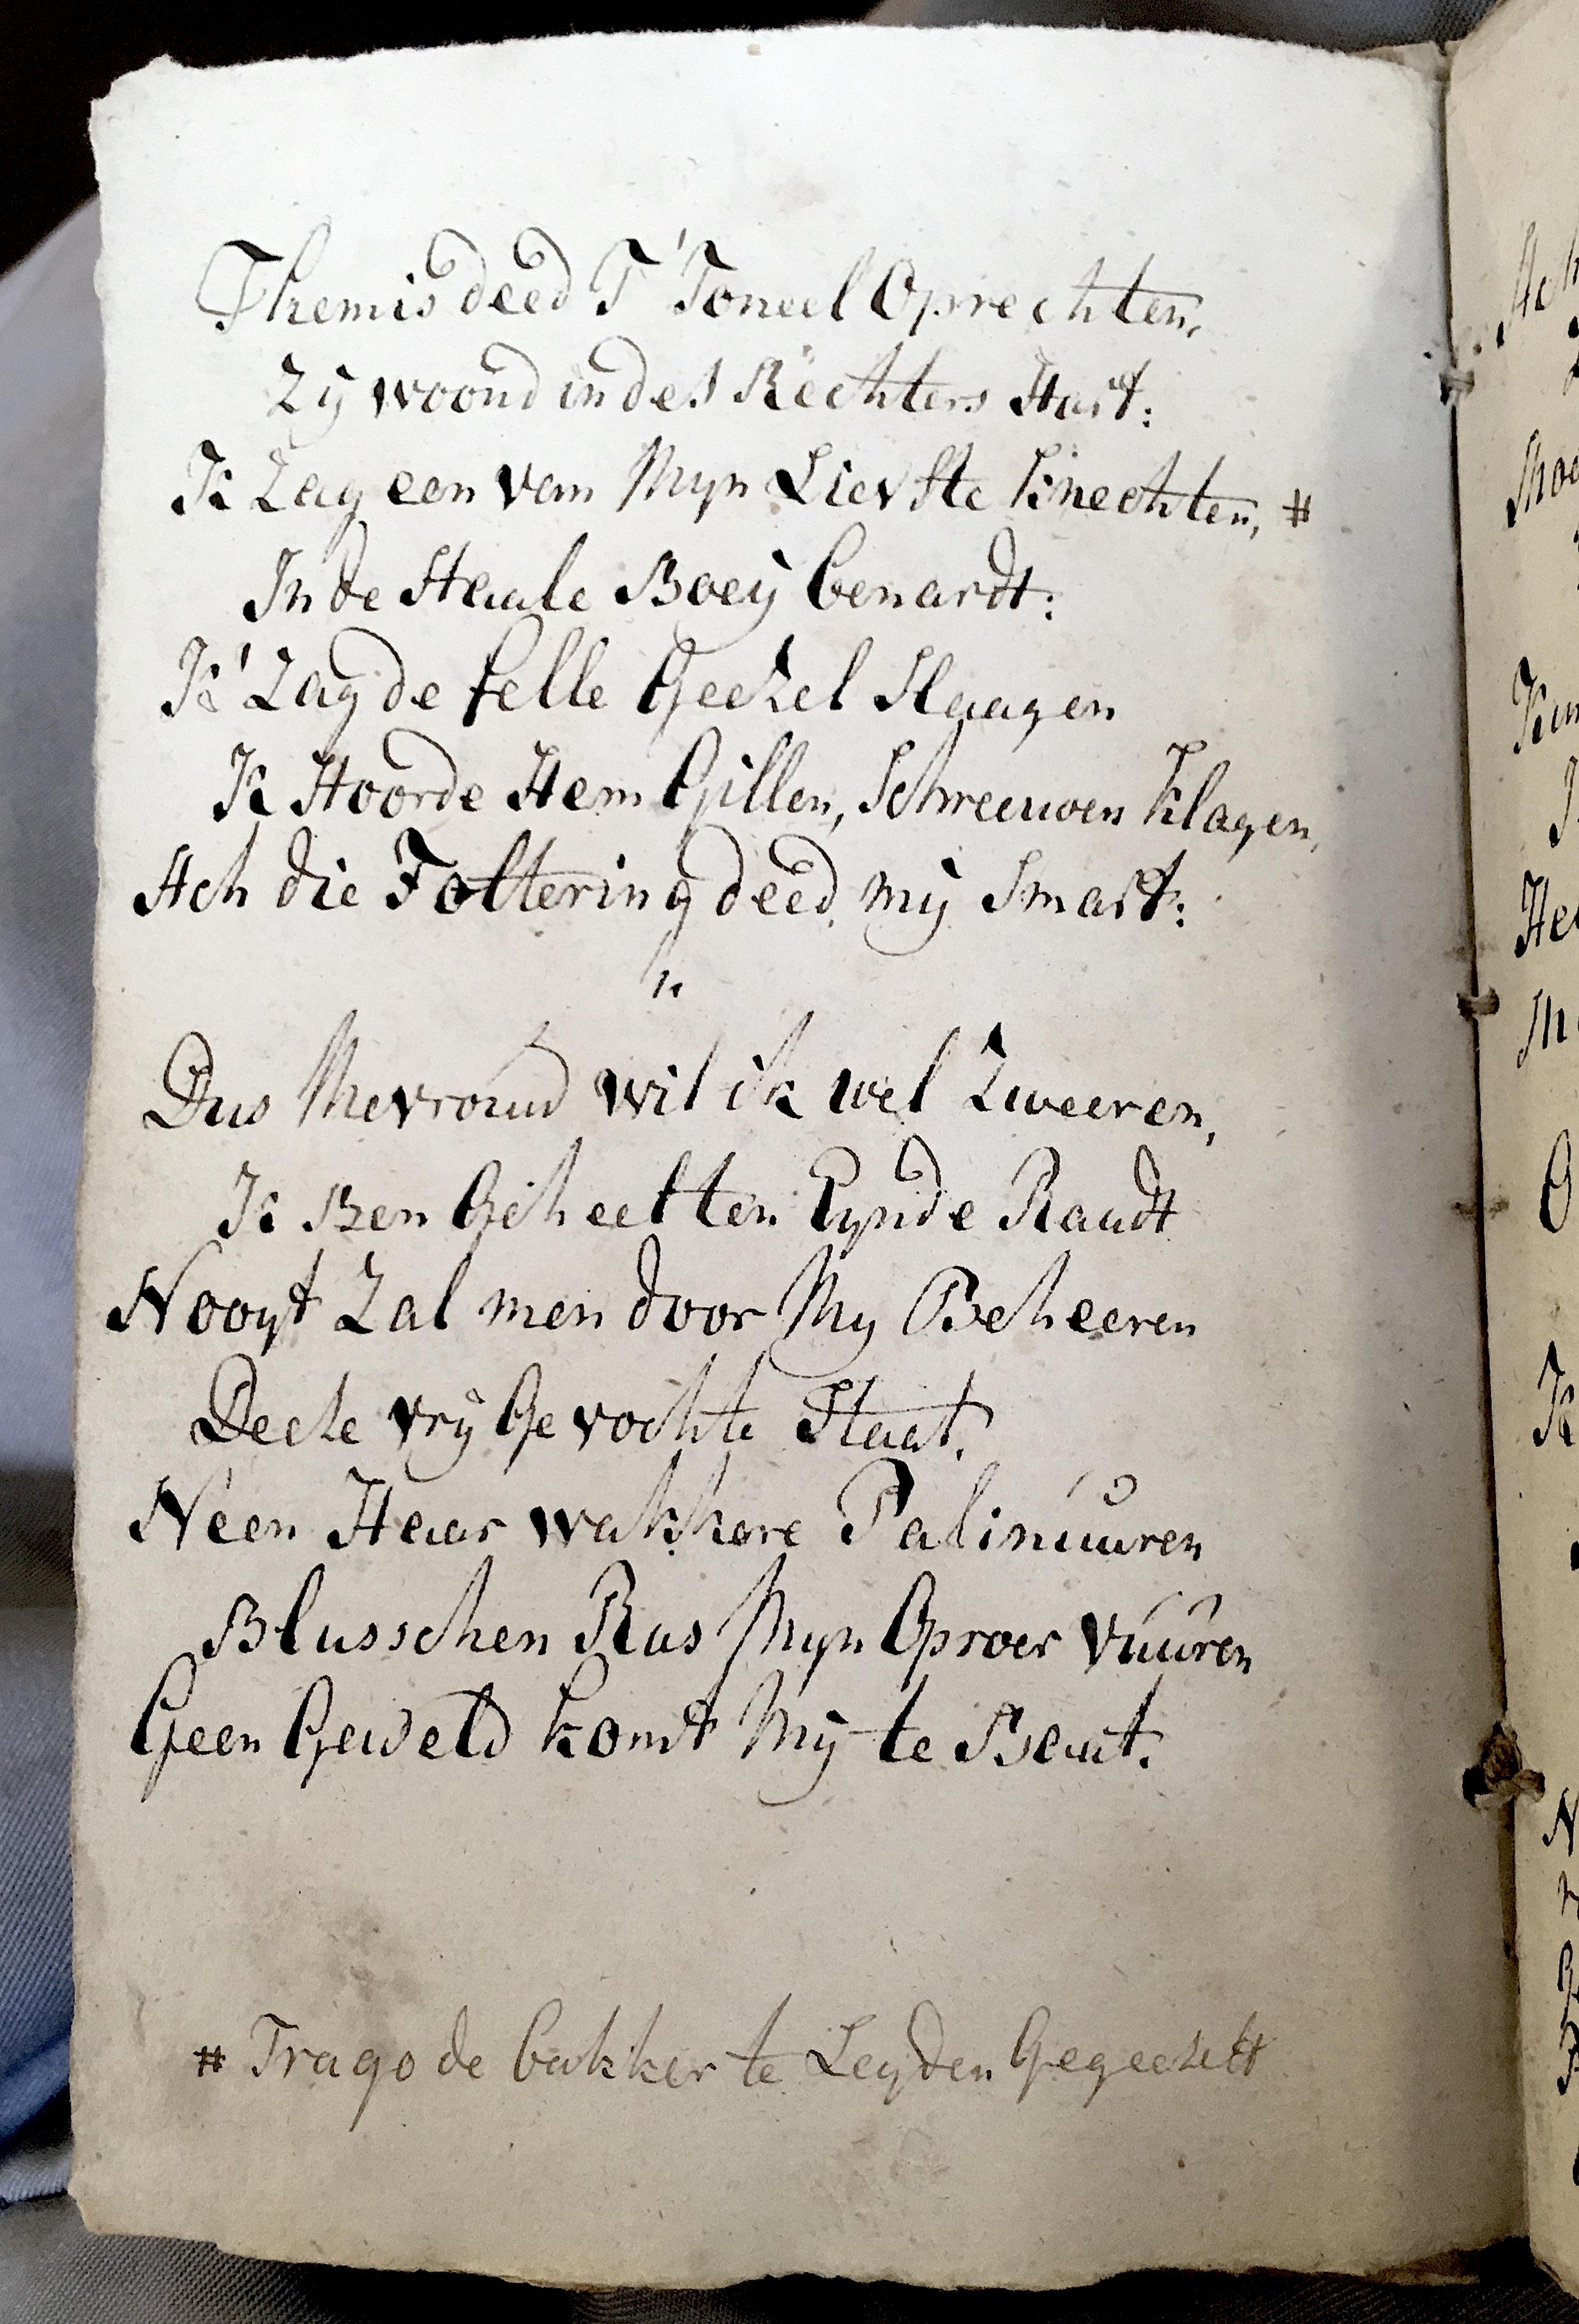 Themis deed T' Toneel Oprechten,
Zÿ woond in des Rechters Hart:
Ik Zag een van Myn Liefste Knechten, #
In de Staale Boeÿ benardt:
Ik' Zag de felle Geesel Slaagen
Ik Hoorde Hem Gillen, Schreeuwen Klagen,
Ach die Foltering deed mÿ Smart:
Dus Mevrouw wil ik wel Zweeren,
Ik Ben Geheel ten Eynde Raadt
Nooyt Zal men door My Beheeren
Deese vrÿ Gevochte Staat.
Néen Haar wakkere Palinúuren
Blusschen Ras Myn Oproer vúuren
Geen Geweld komt Mÿ te Baat.
# Trago de bakker te Leyden Gegeeselt